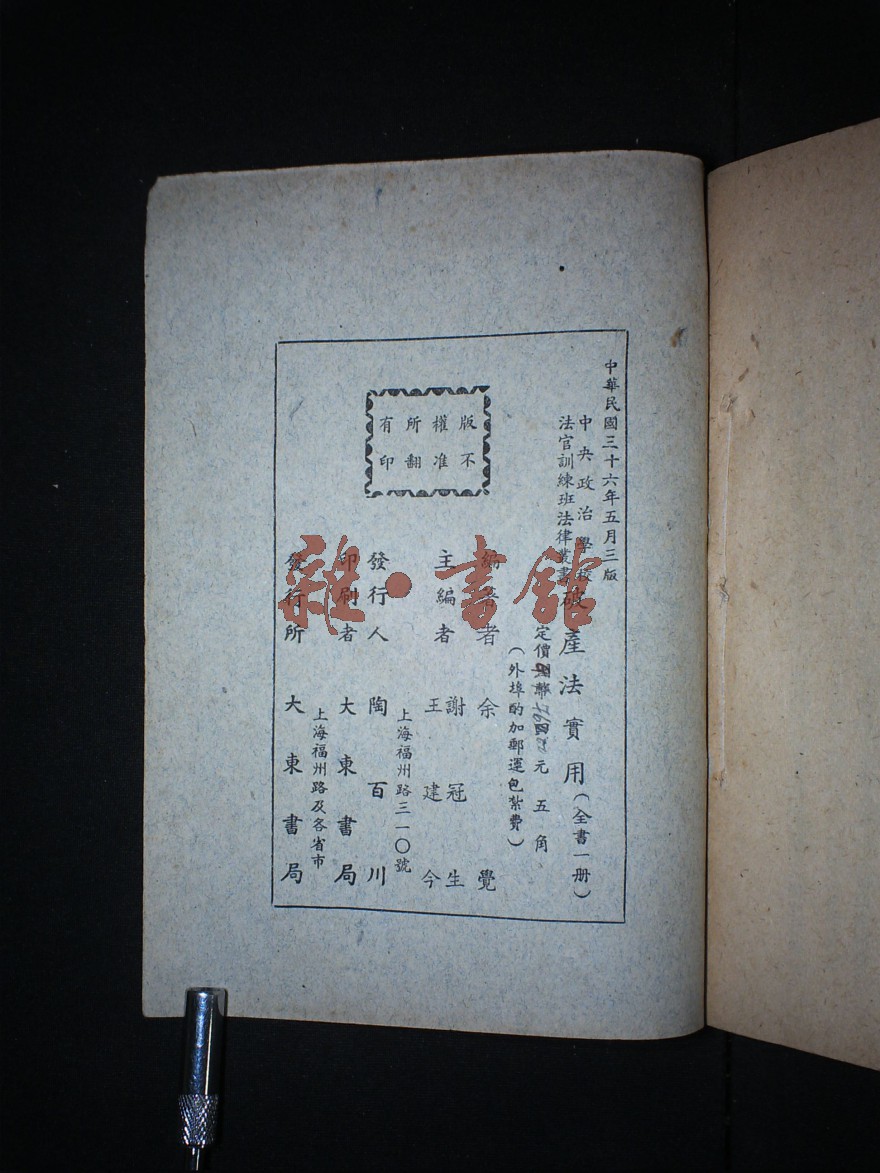 中華民國三十六年五月三版
中央政治學校
法官訓練班法律叢書
破產法實用(全書一册)
定價國幣元五角
(外埠酌加郵運包紮費)
版權所有
不准翻印
編著者 余覺
主編者 謝冠生
王建今
發行人 陶百川
上海福州路三一〇號
印刷者 大東書局
上海福州路及各省市
發行所 大東書局
雜·書館